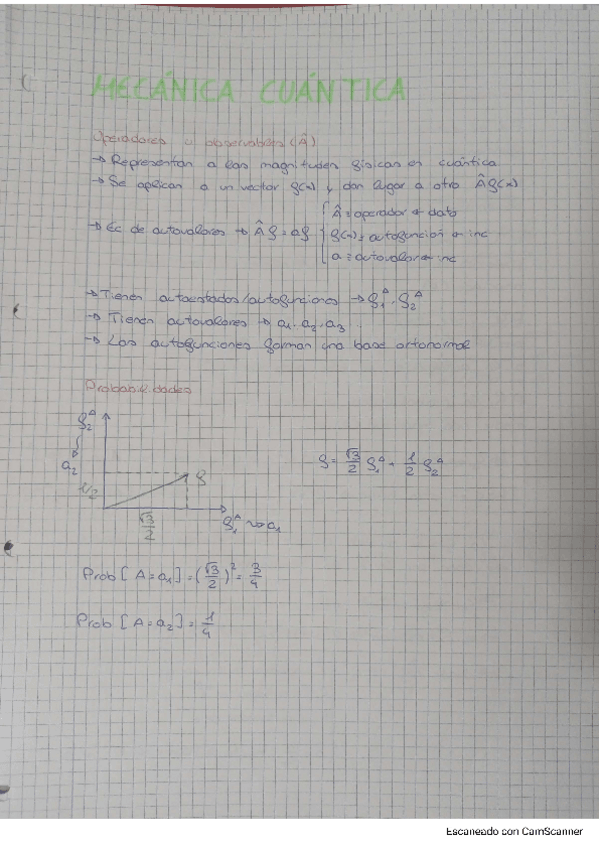 MECÁNICA CUÁNTICA
Operadores u observables (Â)
→ Representan a las magnitudes físicas en cuántica
→ Se aplican a un vector f(x) y dan lugar a otro Â f(x)
→ Ec de autovalores → Â f = a f { Â ≡ operador → dato
f(x) ≡ autofunción → inc
a ≡ autovalor → inc
→ Tienen autoestados/autofunciones → f₁ᴬ, f₂ᴬ
→ Tienen autovalores → a₁, a₂, a₃ ...
→ Las autofunciones forman una base ortonormal
Probabilidades
f₂ᴬ
a₂
1/2
f
√3/2
f₁ᴬ ↝ a₁
f = √3/2 f₁ᴬ + 1/2 f₂ᴬ
Prob [A = a₁] = (√3/2)² = 3/4
Prob [A = a₂] = 1/4
Escaneado con CamScanner